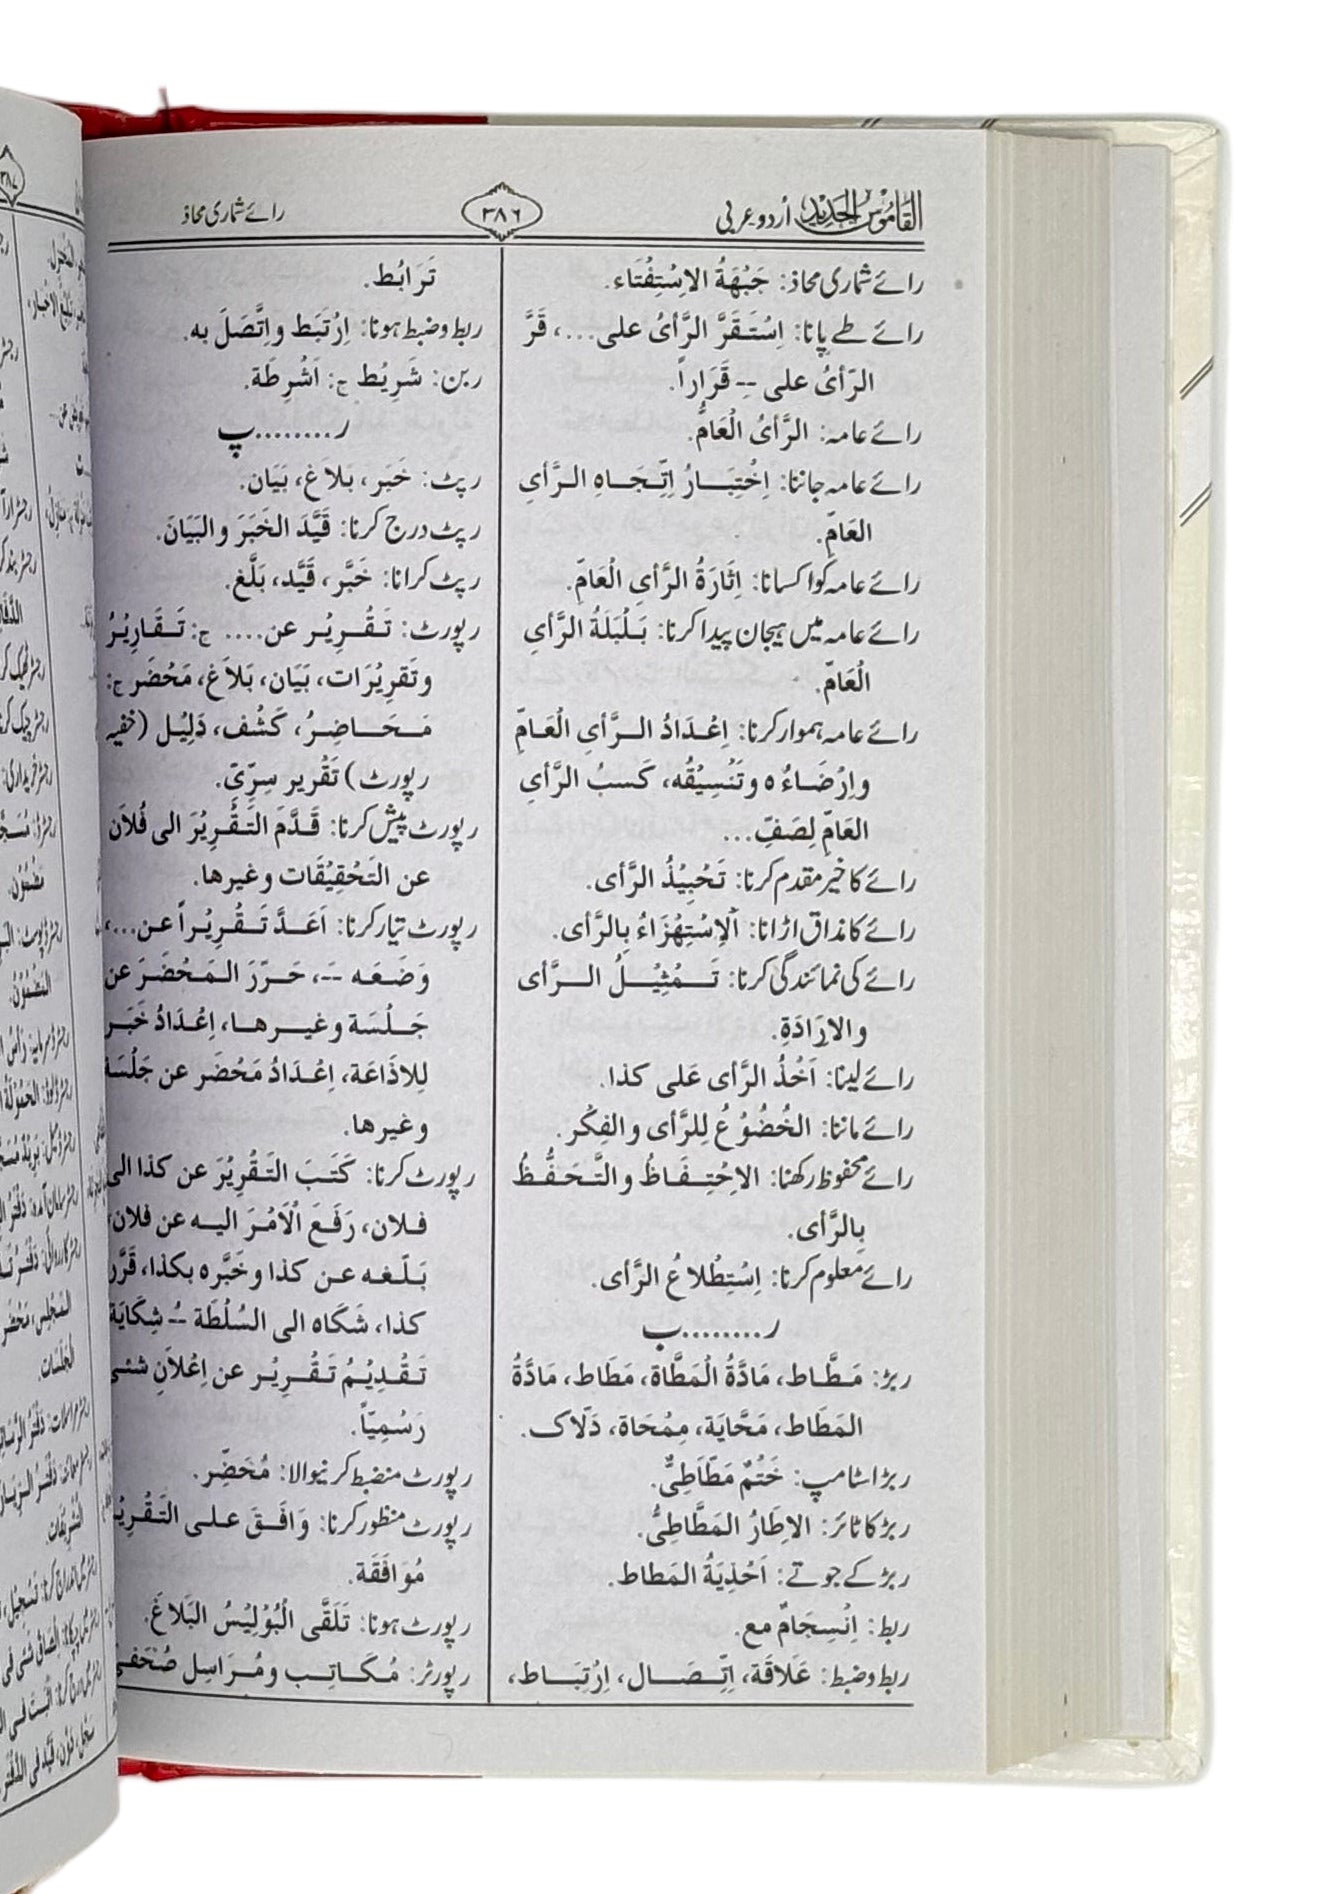 القاموس الجدید اُردو عربی
٣٨٦
رائے شماری محاذ
رائے شماری محاذ: جَبْهَةُ الاِسْتِفْتَاء.
رائے طے پانا: اِسْتَقَرَّ الرَّأیُ علی...، قَرَّ
الرّأیُ علی -- قَرَاراً.
رائے عامہ: الرَّأیُ الْعَامُّ.
رائے عامہ جاننا: اِخْتِبَارُ اِتِّجَاهِ الرَّأیِ
العَامِّ.
رائے عامہ کو اکسانا: اِثَارَةُ الرَّأیِ الْعَامِّ.
رائے عامہ میں ہیجان پیدا کرنا: بَلْبَلَةُ الرَّأیِ
الْعَامِّ.
رائے عامہ ہموار کرنا: اِعْدَادُ الرَّأیِ الْعَامِّ
وَاِرْضَاءُہ وتَنْسِیْقُه، کَسبُ الرَّأیِ
العَامِّ لِصَفِّ...
رائے کا خیر مقدم کرنا: تَحْبِیْذُ الرَّأی.
رائے کا مذاق اڑانا: اَلاِسْتِهْزَاءُ بِالرَّأی.
رائے کی نمائندگی کرنا: تَمْثِیْلُ الرَّأی
والاِرَادَةِ.
رائے لینا: اَخْذُ الرَّأی عَلی کذا.
رائے ماننا: الخُضُوْعُ لِلرَّأی والفِکْر.
رائے محفوظ رکھنا: الاِحْتِفَاظُ والتَّحَفُّظُ
بِالرَّأی.
رائے معلوم کرنا: اِسْتِطْلاعُ الرَّأی.
ر........ب
ربڑ: مَطَّاط، مَادَّةُ الْمَطَّاة، مَطَاط، مَادَّةُ
المَطَاط، مَحَّایَة، مِمْحَاة، دَلّاک.
ربڑ اسٹامپ: خَتْمٌ مَطّاطِیٌّ.
ربڑ کا ٹائر: الاِطَارُ المَطَّاطِیُّ.
ربڑ کے جوتے: اَحْذِیَةُ المَطاط.
ربط: اِنْسِجَامٌ مع.
ربط و ضبط: عَلَاقَة، اِتِّصَال، اِرْتِبَاط،
تَرَابُط.
ربط و ضبط ہونا: اِرْتَبَط واِتَّصَلَ به.
ربن: شَرِیْط ج: اَشْرِطَة.
ر........پ
رپٹ: خَبَر، بَلاَغ، بَیَان.
رپٹ درج کرنا: قَیَّدَ الخَبَرَ والبَیَانَ.
رپٹ کرانا: خَبَّر، قَیَّد، بَلَّغ.
رپورٹ: تَقْرِیْر عن.... ج: تَقَارِیْرُ
وتَقرِیْرَات، بَیَان، بَلاَغ، مَحْضَر ج:
مَحَاضِرُ، کَشْف، دَلِیْل (خفیہ
رپورٹ) تَقْرِیر سِرِّیّ.
رپورٹ پیش کرنا: قَدَّمَ التَقْرِیْرَ الی فُلاَن
عن التَحْقِیْقَات وغیرها.
رپورٹ تیار کرنا: اَعَدَّ تَقْرِیْراً عن...،
وَضَعَه --، حَرَّرَ المَحْضَرَ عن
جَلْسَة وغیرها، اِعْدَادُ خَبَر
لِلاذَاعَة، اِعْدَادُ مَحْضَر عن جَلْسَة
وغیرها.
رپورٹ کرنا: کَتَبَ التَقْرِیْرَ عن کذا الی
فلان، رَفَعَ الْاَمْرَ الیه عن فلان،
بَلّغه عن کذا وخَبَّره بکذا، قَرَّر
کذا، شَکَاه الی السُلْطَة -- شِکَایَة
تَقْدِیْمُ تَقْرِیْر عن اِعْلاَنِ شئی
رَسْمِیّاً.
رپورٹ منضبط کرنیوالا: مُحَضِّر.
رپورٹ منظور کرنا: وَافَقَ علی التَقْرِیْر
مُوَافَقَة.
رپورٹ ہونا: تَلَقَّی الْبُوْلِیْسُ البَلاَغَ.
رپورٹر: مُکَاتِب ومُرَاسِل صُحَفی